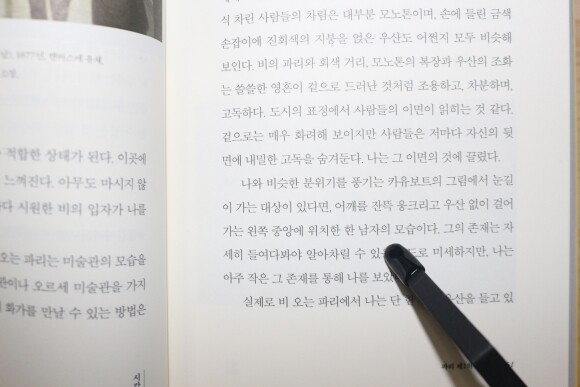 날) 1877년, 캔버스에 유채,
소장
적합한 상태가 된다. 이곳에
느껴진다. 아무도 마시지 않
다 시원한 비의 입자가 나를
오는 파리는 미술관의 모습을
관이나 오르세 미술관을 가지
화가를 만날 수 있는 방법은
시간
식 차린 사람들의 차림은 대부분 모노톤이며, 손에 들린 금색
손잡이에 진회색의 지붕을 얹은 우산도 어쩐지 모두 비슷해
보인다. 비의 파리와 회색 거리, 모노톤의 복장과 우산의 조화
는 쓸쓸한 영혼이 겉으로 드러난 것처럼 조용하고, 차분하며,
고독하다. 도시의 표정에서 사람들의 이면이 읽히는 것 같다.
겉으로는 매우 화려해 보이지만 사람들은 저마다 자신의 뒷
면에 내밀한 고독을 숨겨둔다. 나는 그 이면의 것에 끌렸다.
나와 비슷한 분위기를 풍기는 카유보트의 그림에서 눈길
이 가는 대상이 있다면, 어깨를 잔뜩 웅크리고 우산 없이 걸어
가는 왼쪽 중앙에 위치한 한 남자의 모습이다. 그의 존재는 자
세히 들여다봐야 알아차릴 수 있는 도로 미세하지만, 나는
아주 작은 그 존재를 통해 나를 보았
실제로 비 오는 파리에서 나는 단 우산을 들고 있